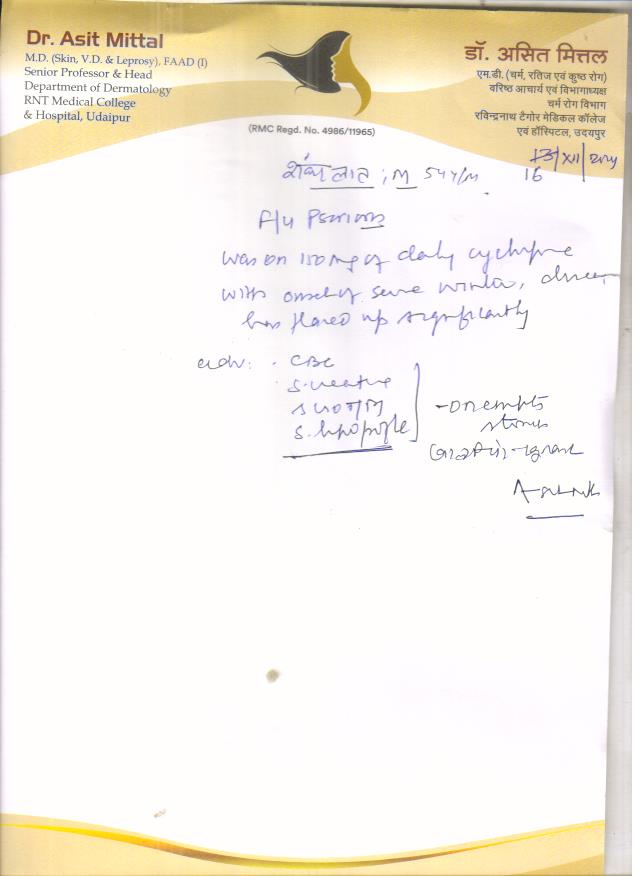 Dr. Asit Mittal
M.D. (Skin, V.D. & Leprosy), FAAD (I)
Senior Professor & Head
Department of Dermatology
RNT Medical College
& Hospital, Udaipur
डॉ. असित मित्तल
एम.डी. (चर्म, रतिज एवं कुष्ठ रोग)
वरिष्ठ आचार्य एवं विभागाध्यक्ष
चर्म रोग विभाग
रविन्द्रनाथ टैगोर मेडिकल कॉलेज
एवं हॉस्पिटल, उदयपुर
(RMC Regd. No. 4986/11965)
M 54y/m
16
F/u Psoriasis
was on 150 mg of daily
with onset of severe winter,
has flared up significantly
adv: . CBC
S. creatine
S. lipoprofile
- on empty